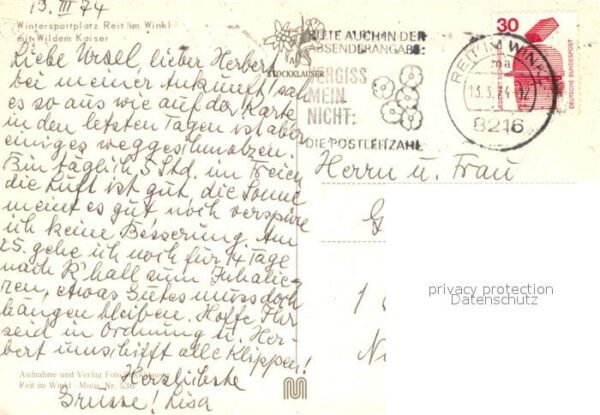 13. III 74
Wintersportplatz Reit im Winkl
mit Wildem Kaiser
Liebe Ursel, lieber Herbert
bei meiner Ankunft sah
es so aus wie auf der Karte
in den letzten Tagen ist aber
einiges weggeschmolzen.
Bin täglich 5 Std. im Freien
die Luft ist gut, die Sonne
meint es gut, noch verspüre
ich keine Besserung. Am
25. gehe ich noch für 4 Tage
nach R'hall zum Inhalie-
ren, etwas Gutes muss doch
hängen bleiben. Hoffe Ihr
seid in Ordnung u. Her-
bert umschifft alle Klippen!
Herzlichste
Grüsse! Lisa
Aufnahme und Verlag Foto
Reit im Winkl - Motiv Nr. 536
STOCKKLAUSNER
BITTE AUCH IN DER
ABSENDERANGABE:
VERGISS
MEIN
NICHT:
DIE POSTLEITZAHL
REIT IM WINKL
ma
13.3.74
8216
30
DEUTSCHE BUNDESPOST
Herrn u. Frau
G
privacy protection
Datenschutz